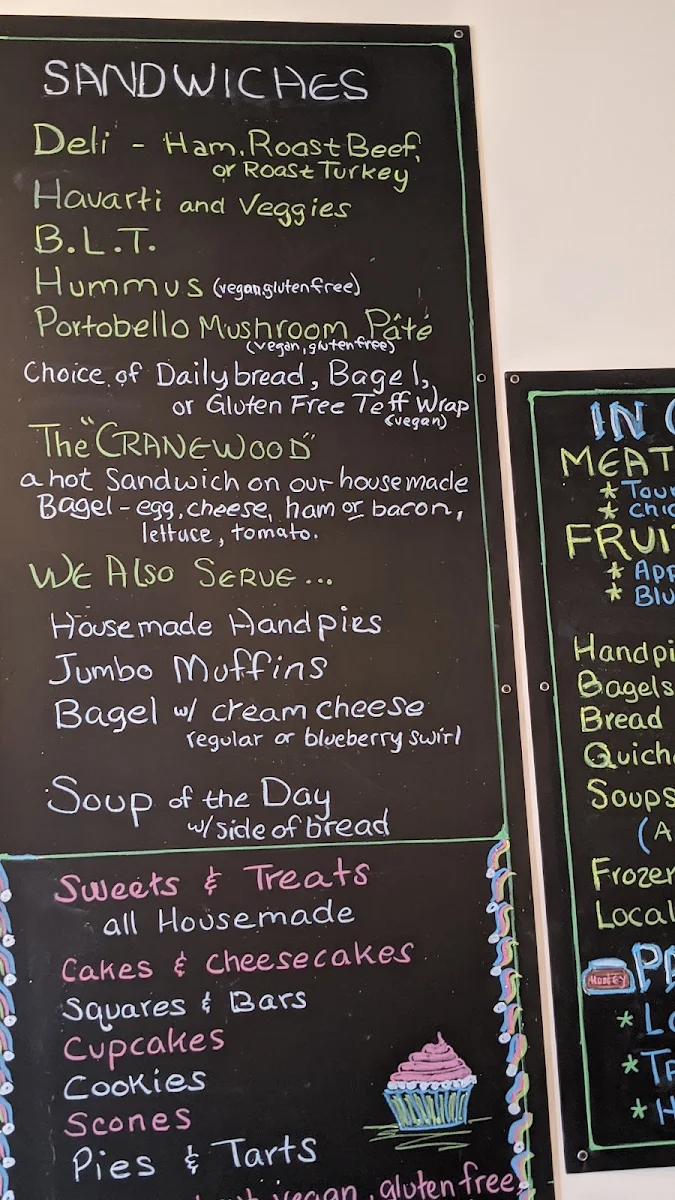 SANDWICHES
Deli - Ham, Roast Beef,
or Roast Turkey
Havarti and Veggies
B.L.T.
Hummus (vegan, gluten free)
Portobello Mushroom Pâté
(vegan, gluten free)
Choice of Daily bread, Bagel,
or Gluten Free Teff Wrap
(vegan)
The "CRANEWOOD"
a hot Sandwich on our housemade
Bagel - egg, cheese, ham or bacon,
lettuce, tomato.
WE ALSO SERVE...
Housemade Handpies
Jumbo Muffins
Bagel w/ cream cheese
regular or blueberry swirl
Soup of the Day
w/ side of bread
Sweets & Treats
all Housemade
Cakes & cheesecakes
Squares & Bars
Cupcakes
Cookies
Scones
Pies & Tarts
vegan, gluten free
IN
MEAT
* Tou
* Chi
FRUI
* App
* Blu
Handpi
Bagels
Bread
Quich
Soups
(A
Frozen
Local
HONEY
PA
* Lo
* T
* H